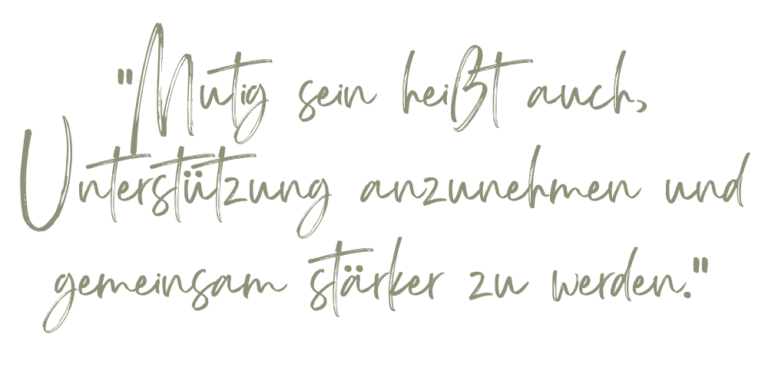 "Mutig sein heißt auch,
Unterstützung anzunehmen und
gemeinsam stärker zu werden."